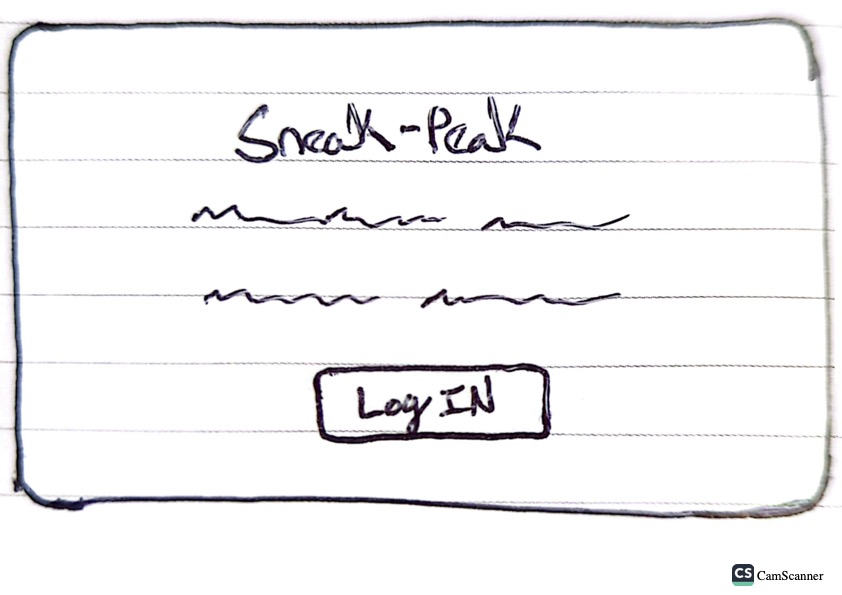 Sneak-Peak
Log IN
CS CamScanner